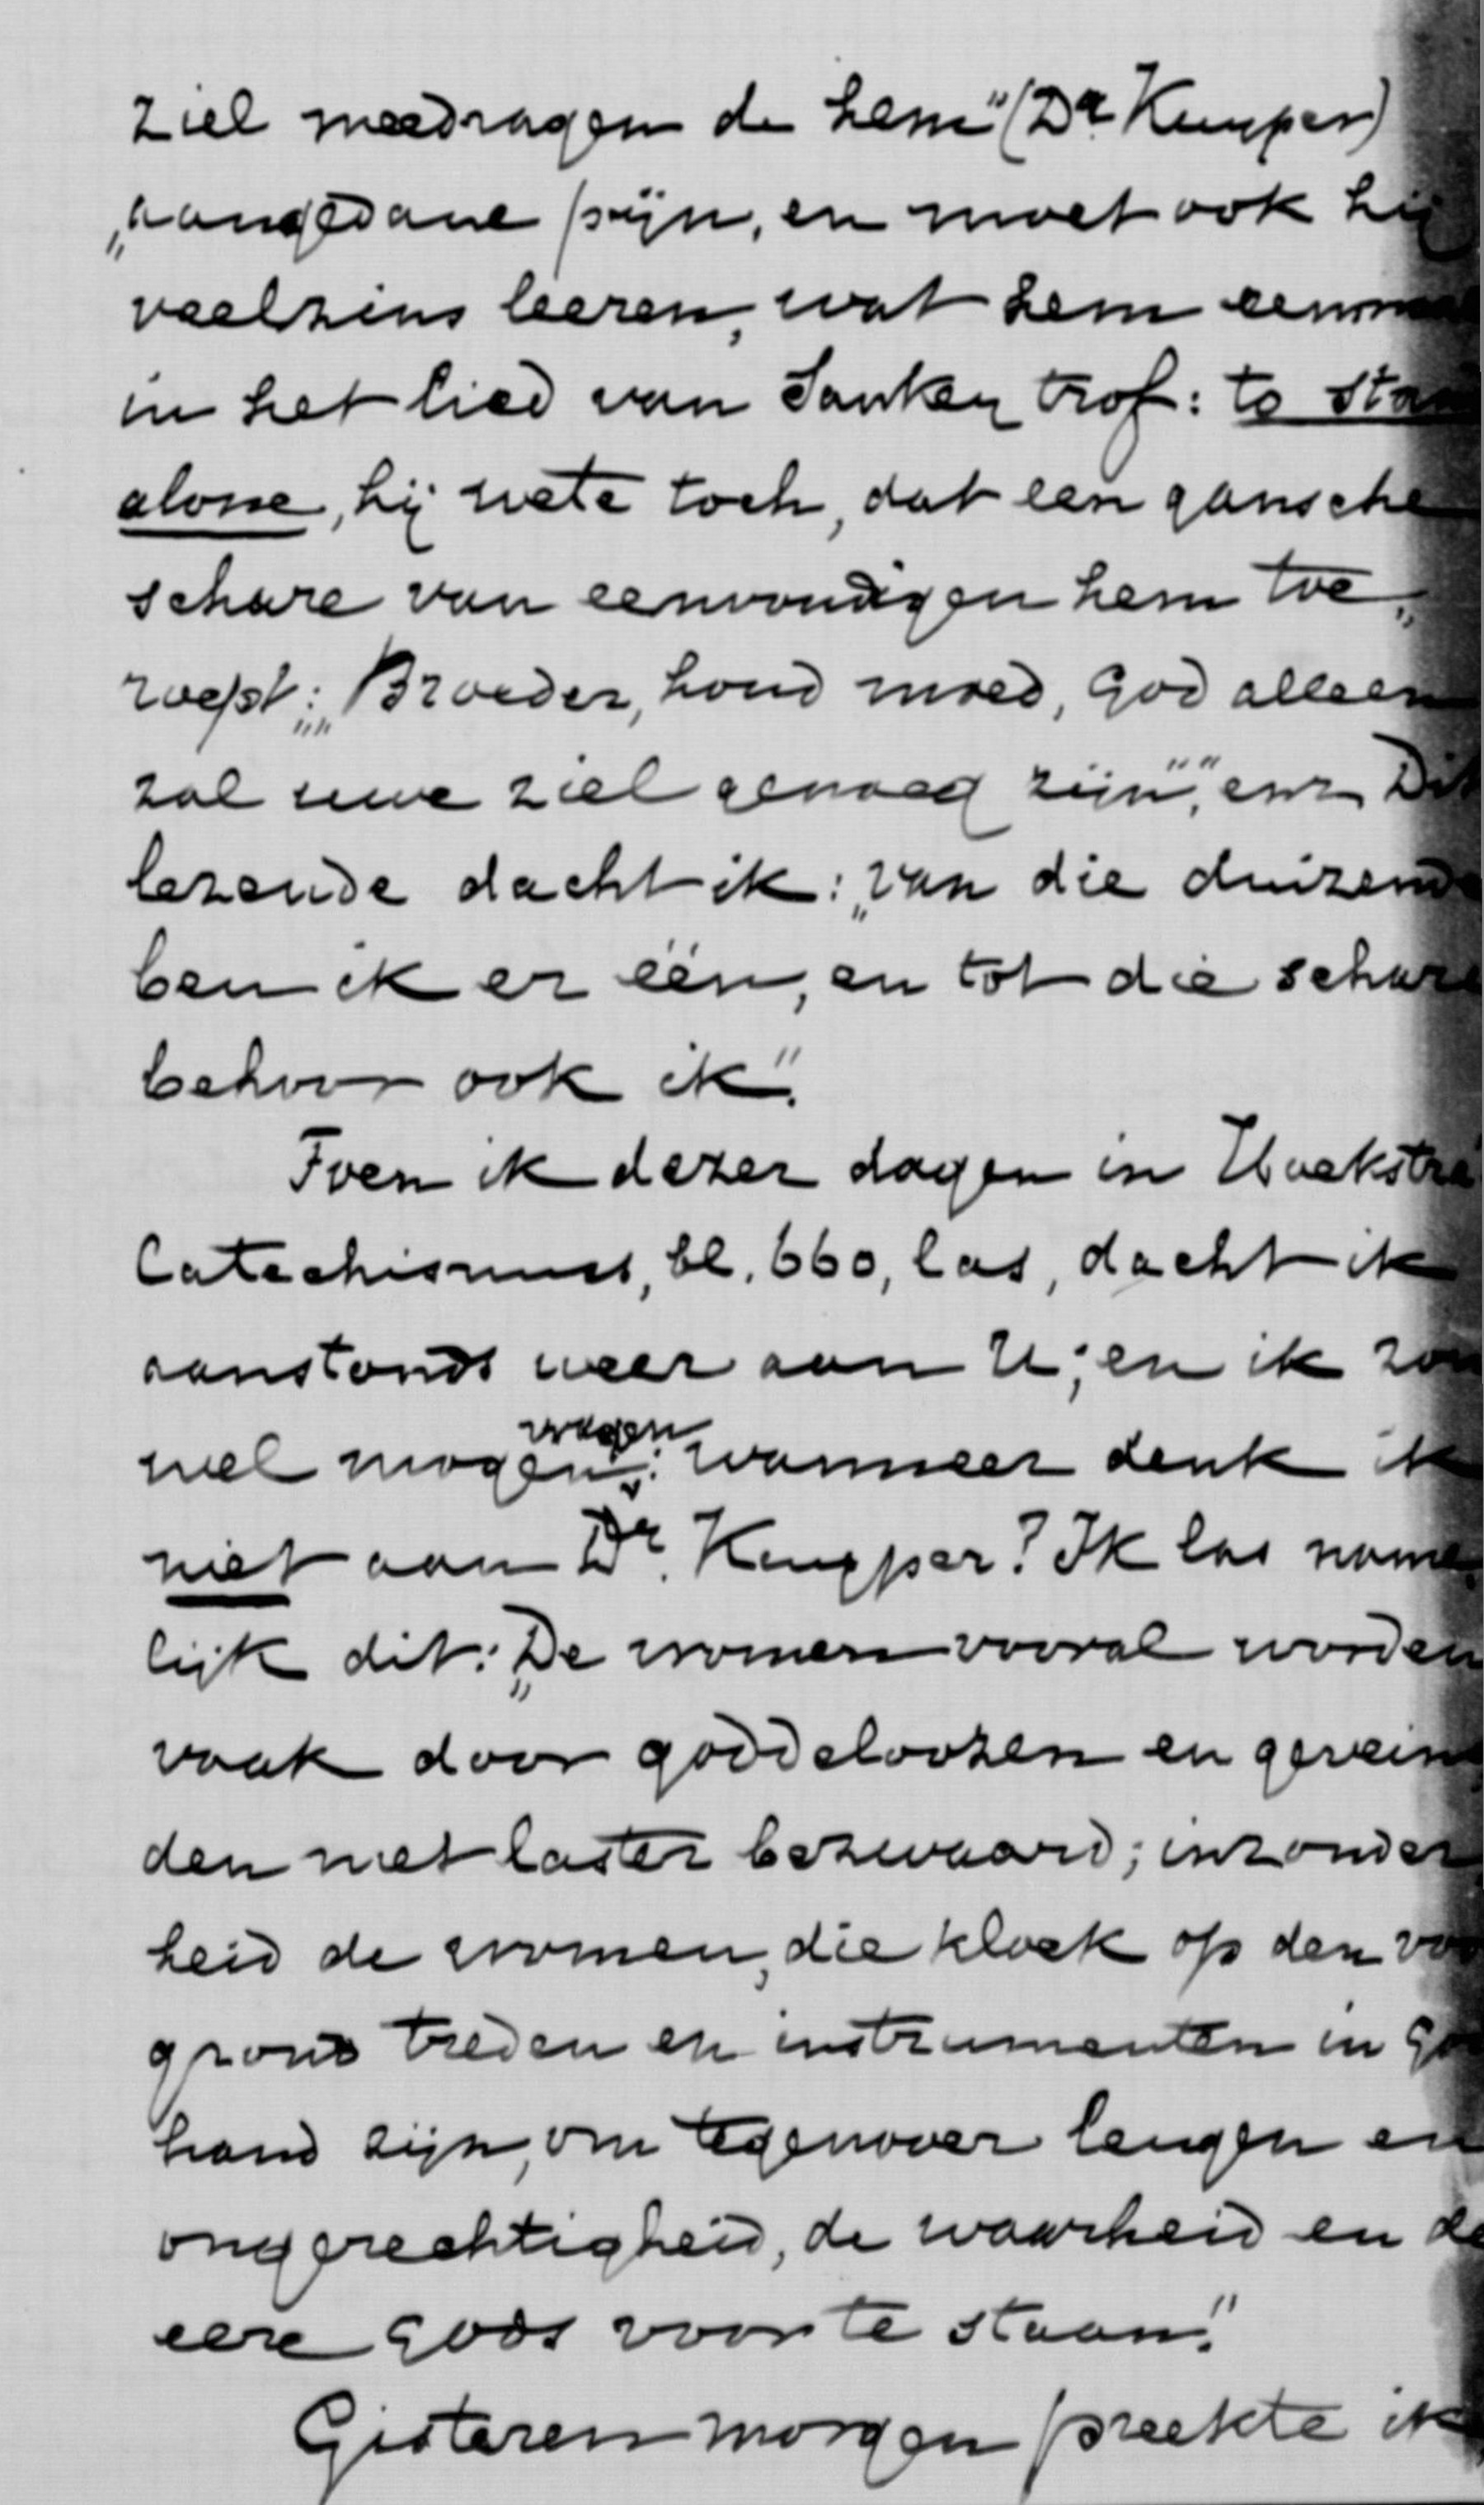 ziel meedragen de hem" (Dr Kuyper)
„aangedane pijn, en moet ook hij
veelszins leeren, wat hem eenmaal
in het lied van Sankey trof: to stand
alone, hij wete toch, dat een gansche
schare van eenvoudigen hem toe„
roept: „„Broeder, houd moed, God alleen
zal uwe ziel genoeg zijn"", enz. Dit
lezende dacht ik: „van die duizend
ben ik er één, en tot die schare
behoor ook ik".
Toen ik dezer dagen in Hoekstra
Catechismus, bl. 660, las, dacht ik
aanstonds weer aan U; en ik zou
wel mogen vragen: wanneer denk ik
niet aan Dr. Kuyper? Ik las name
lijk dit: „De vromen vooral worden
vaak door goddeloozen en geveins
den met laster bezwaard; inzonder
heid de vromen, die kloek op den voor
grond treden en instrumenten in Gods
hand zijn, om tegenover leugen en
ongerechtigheid, de waarheid en de
eere Gods voor te staan."
Gisteren morgen preekte ik